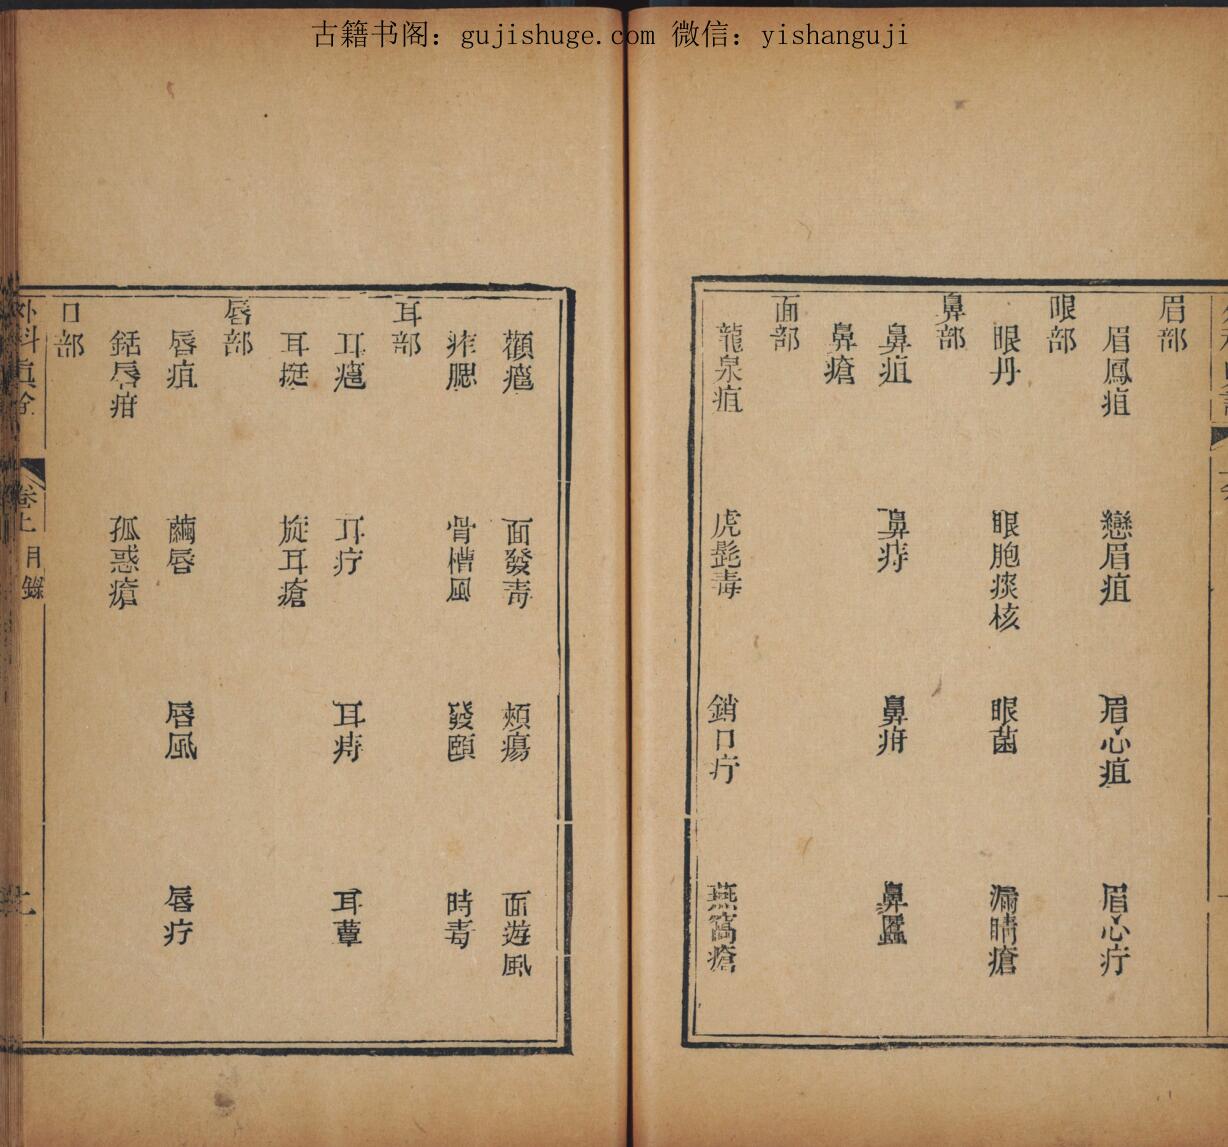 古籍书阁：gujishuge.com 微信：yishanguji
眉部
眉鳳疽 戀眉疽 眉心疽 眉心疔
眼部
眼丹 眼胞痰核 眼菌 漏睛瘡
鼻部
鼻疽 鼻痔 鼻疳 鼻䘌
鼻瘡
面部
龍泉疽 虎髭毒 鎖口疔 燕窩瘡
顴瘟 面發毒 頰瘍 面遊風
痄腮 骨槽風 發頤 時毒
耳部
耳瘟 耳疔 耳痔 耳蕈
耳挺 旋耳瘡
唇部
唇疽 繭唇 唇風 唇疔
銛唇疳 孤惑瘡
口部
外科真詮 卷上 目錄